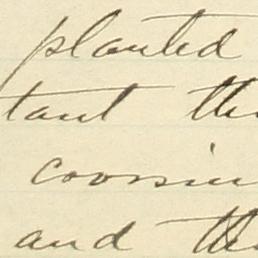 planted
tant the
cousin
and the